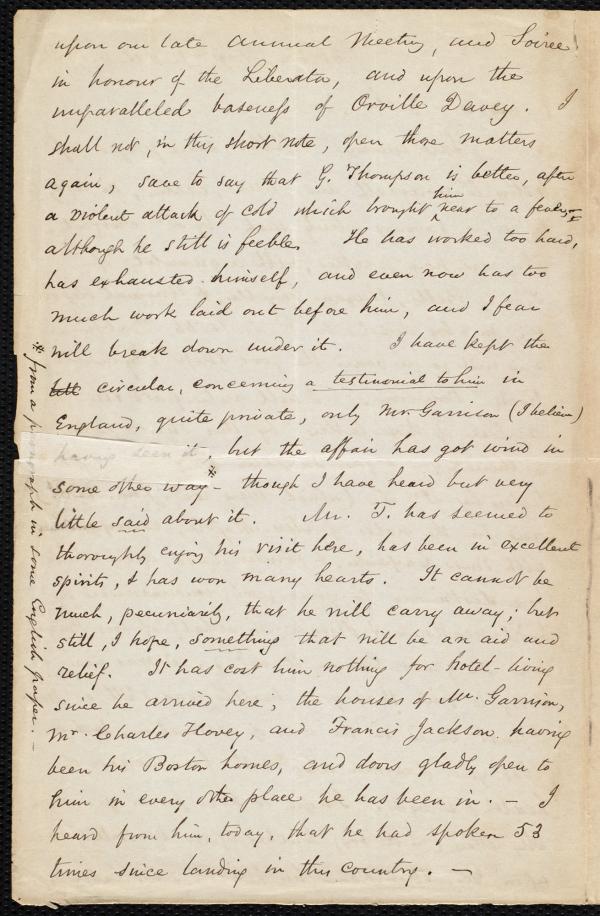 upon our late Annual Meeting, and Soiree
in honour of the Liberator, and upon the
unparalleled baseness of Orville Davey. I
shall not, in this short note, open those matters
again, save to say that G. Thompson is better, after
a violent attack of cold which brought him near to a fever -
although he still is feeble. He has worked too hard,
has exhausted himself, and even now has too
much work laid out before him, and I fear
will break down under it. I have kept the
circular, concerning a testimonial to him in
England, quite private, only Mr. Garrison (I believe)
having seen it, but the affair has got wind in
some other way* - though I have heard but very
little said about it. Mr. T. has seemed to
thoroughly enjoy his visit here, has been in excellent
spirits, & has won many hearts. It cannot be
much, pecuniarily, that he will carry away; but
still, I hope, something that will be an aid and
relief. It has cost him nothing for hotel-living
since he arrived here; the houses of Mr. Garrison,
Mr. Charles Hovey, and Francis Jackson having
been his Boston homes, and doors gladly open to
him in every other place he has been in. - I
heard from him, today, that he had spoken 53
times since landing in this country. -
* from a paragraph in some English paper. -